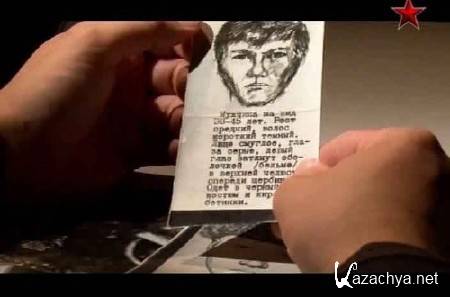 Мужчина на вид
30-45 лет. Рост
средний, волос
короткий темный.
Лицо смуглое, гла-
за серые, левый
глаз затянут обо-
лочкой /бельмо/
в верхней челюс
спереди щербин
Одет в черный
костюм и кир
ботинки.
Kazachya.net